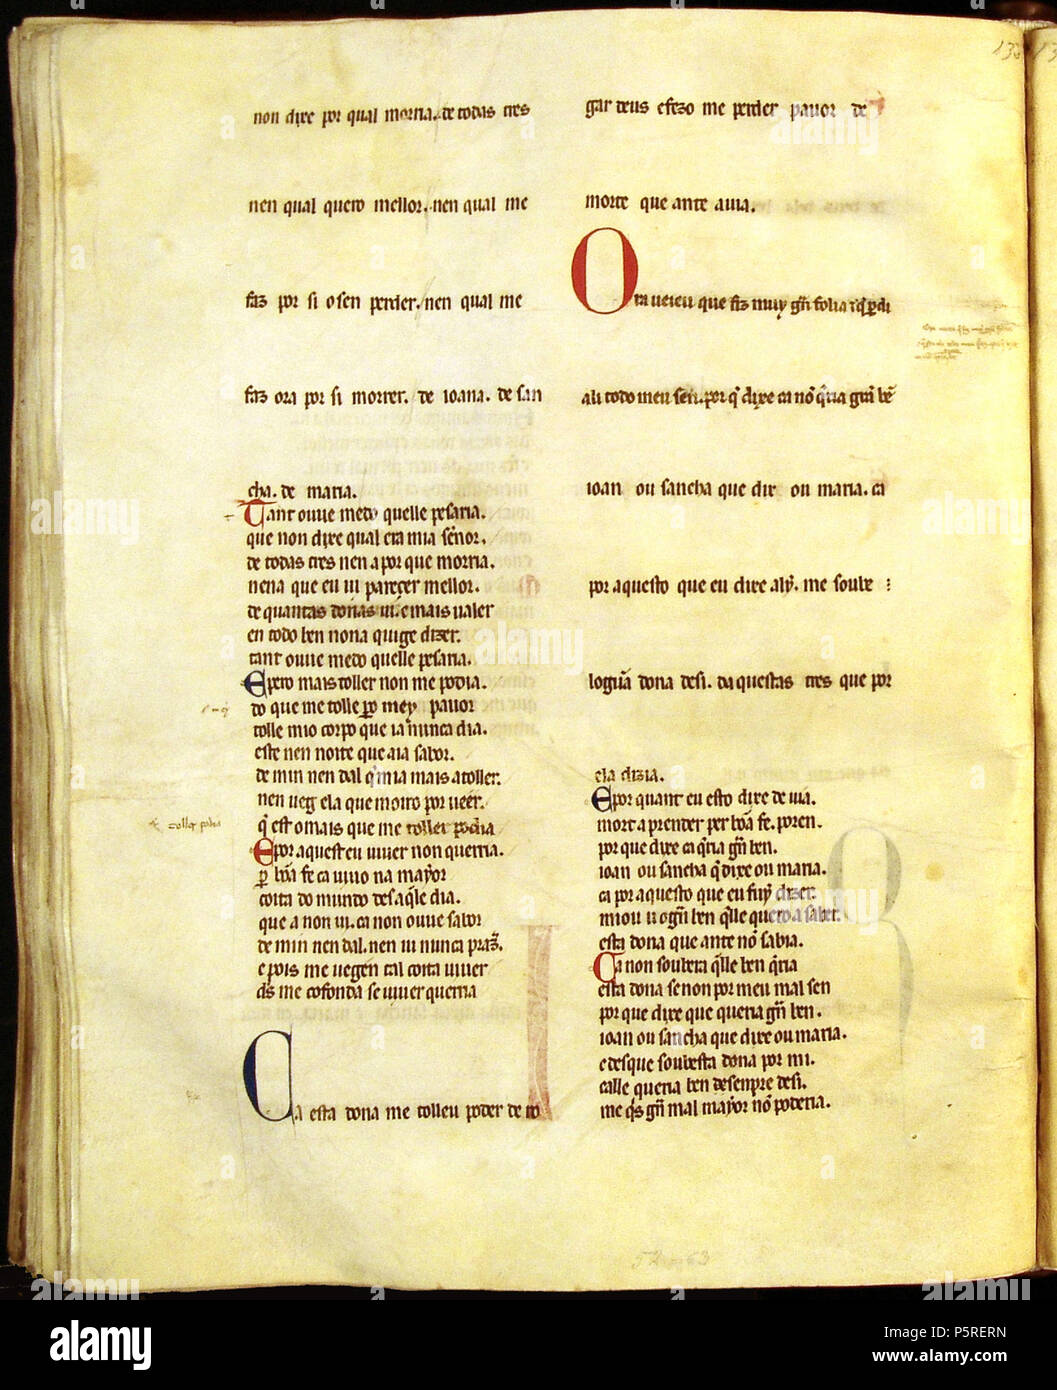 non dixe por qual morria. de todas tres
nen qual quero mellor. nen qual me
faz por si o sen perder. nen qual me
faz ora por si morrer. de ioana. de san
cha. de maria.
Tant ouue medo quelle pesaria.
que non dixe qual era mia señor.
de todas tres nen a por que morria.
nena que eu ui pareçer mellor.
de quantas donas ui. e mais ualer
en todo ben nona quige dizer.
tant ouue medo quelle pesaria.
E pero mais toller non me podia.
do que me tolle ꝑo mey pauor
tolle mio corpo que ia nunca dia.
este nen noite que aia sabor.
de min nen dal q̇ mia mais a toller.
nen ueg ela que moiro por ueer.
q̇ est o mais que me toller podia
E por aquest eu uiuer non querria.
ꝑ bõa fe ca uiuo na mayor
coita do mundo des aq̃le dia.
que a non ui. ca non ouue sabor
de min nen dal. nen ui nunca praz̃.
e pois me uegen tal coita uiuer
d̃s me cofonda se uiuer querria
Ca esta dona me tolleu poder de ro
gar deus e fezo me perder pauor de
morte que ante auia.
Ora ueieu que fiz muy gñ folia
ali todo meu sen. por q̃ dixe ca nõ q̇ria gran bẽ
ioan ou sancha que dix ou maria. ca
por aquesto que eu dixe aly. me soube
logũa dona desi. daquestas tres que por
ela dizia.
E por quant eu esto dixe deuia.
mort a prender per bõa fe. poren.
por que dixe ca q̇ria gñ ben.
ioan ou sancha q̃ dixe ou maria.
ca por aquesto que eu fuy dizer.
miou uogũ ben q̃lle quero a saber.
esta dona que ante nõ sabia.
Ca non soubera q̃lle ben q̇ria
esta dona se non por meu mal sen
por que dixe que queria gñ ben.
ioan ou sancha que dixe ou maria.
e desque soubesta dona por mi.
calle queria ben desenpre desi.
me q̇s gñ mal mayor nõ poderia.
toller podia
alamy
Image ID: P5RERN
www.alamy.com